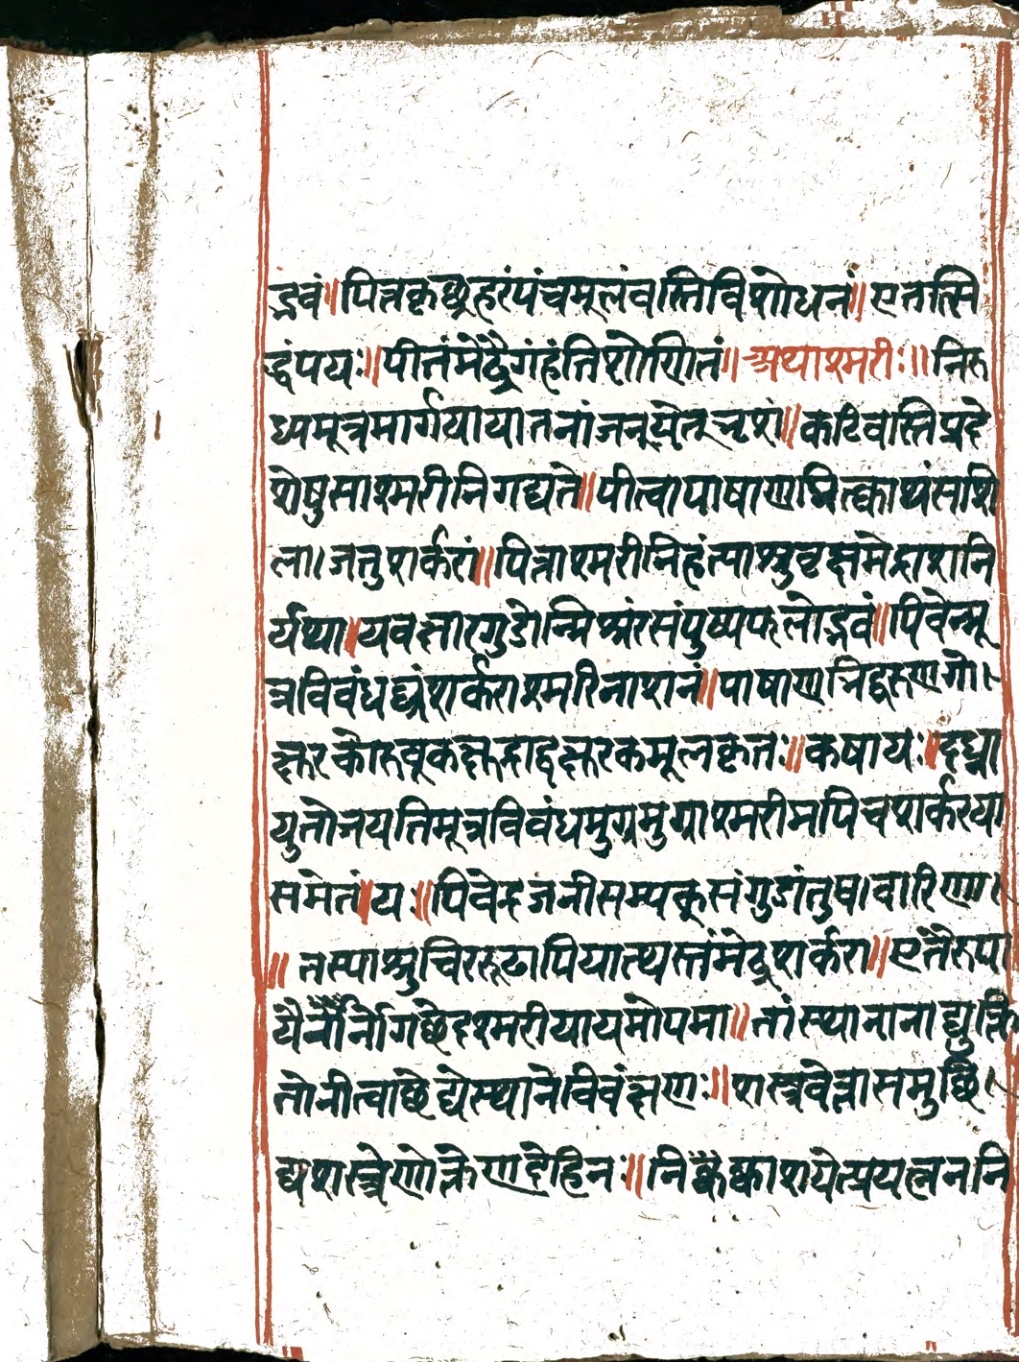 द्भवं॥पित्तकृछ्रहरंपंचमूलंवस्तिविशोधनं॥एतत्सि
द्धंपयः॥पीतंमेढ्रैगंहंतिशोणितं॥अथाश्मरीः॥निरु
ध्यमूत्रमार्गयायातनांजनयेत्भृशं॥कटिवस्तिप्रदे
शेषुसाश्मरीनिगद्यते॥पीत्वापाषाणभित्क्वाथंसशि
ला।जतुशर्करां॥पित्ताश्मरीनिहंत्याश्रुवृक्षमेद्राशनि
र्यथा॥यवक्षारगुडोन्मिश्रंरसंपुष्पफलोद्भवं॥पिवेन्मू
त्रविवंधघ्नंशर्कराश्मरिनाशनं॥पाषाणभिद्वरुणगो।
क्षुरकोरुवूकक्षुद्राद्वक्षुरकमूलकृतः॥कषायः॥दध्ना
युतोजयतिमूत्रविवंधमुग्रमुग्राश्मरीमपिचशर्करया
समेतं॥यः॥पिवेद्रजनीसम्यक्सगुडांतुष।वारिणा।
॥तस्याश्रुचिररूढापियात्यस्तंमेढ्रशर्करा॥एतैरुपा
यैर्नोर्नोगछेदश्मरीयायमोपमा॥तांस्थानानाद्युक्ति
तोनीत्वाछेद्येस्थानेविवंक्षणः॥शस्त्रवेत्तासमुछि।
द्यशस्त्रेणोक्तेणदेहिनः॥निष्कैष्काशयेत्प्रयत्नननि